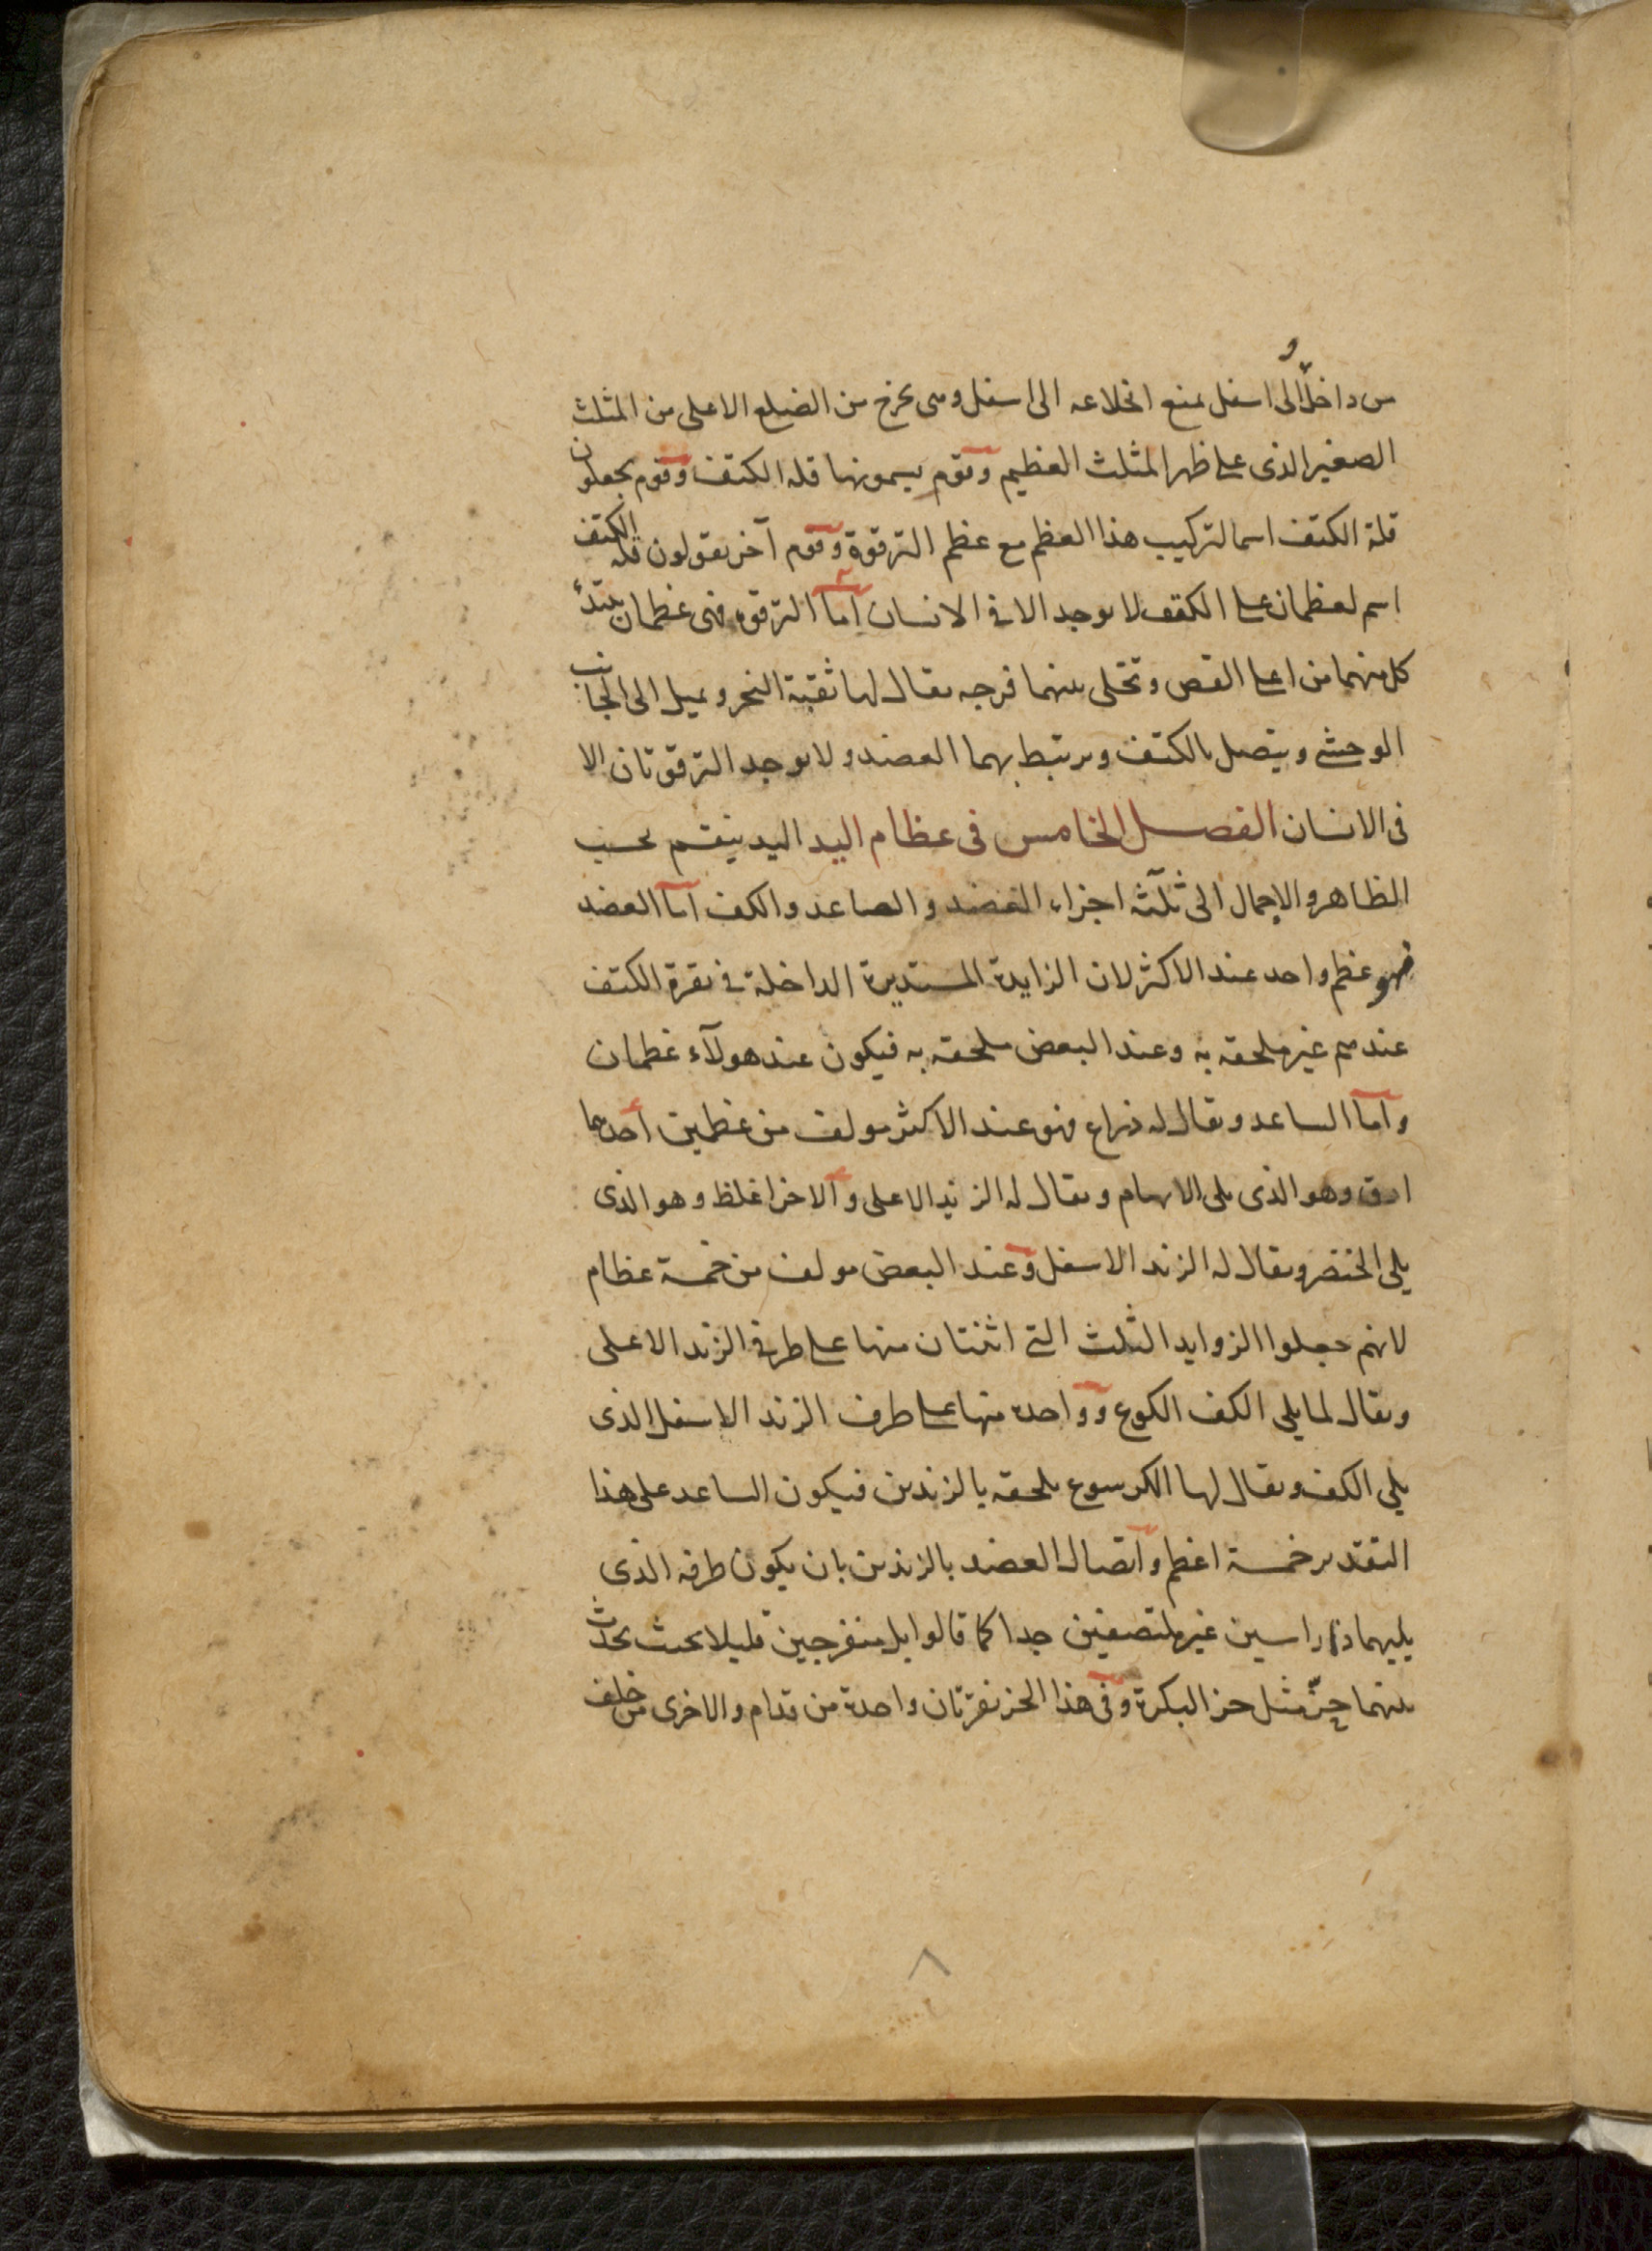 من داخل والى اسفل يمنع انخلاعه الى اسفل وهى يخرج من الضلع الاعلى من المثلث
الصغير الذى على ظهر المثلث العظيم وقوم يسمونها قلة الكتف وقوم يجعلون
قلة الكتف اسما لتركيب هذا العظم مع عظم الترقوة وقوم آخر يقولون قلة الكتف
اسم لعظمان على الكتف لا يوجد الا فى الانسان اما الترقوه فهى عظمان يبتدئ
كل منهما من اعلى القص وتخلى بينهما فرجه يقال لها ثقبة النحر ويميل الى الجانب
الوحشى ويتصل بالكتف ويرتبط بهما العضد ولا يوجد الترقوتان الا
فى الانسان الفصل الخامس فى عظام اليد اليد ينقسم بحسب
الظاهر والاجمال الى ثلثة اجزاء العضد والصاعد والكف اما العضد
فهو عظم واحد عند الاكثر لان الزايدة المستديرة الداخلة فى نقرة الكتف
عندهم غير ملحقه به وعند البعض ملحقه به فيكون عند هولآء عظمان
واما الساعد ويقال له ذراع فهو عند الاكثر مولف من عظمين احدهما
ادق وهو الذى يلى الابهام ويقال له الزند الاعلى والاخر اغلظ وهو الذى
يلى الخنصر ويقال له الزند الاسفل وعند البعض مولف من خمسة عظام
لانهم جعلوا الزوايد الثلث التى اثنتان منها على طرفى الزند الاعلى
ويقال لما يلى الكف الكوع وواحده منها على طرف الزند الاسفل الذى
يلى الكف ويقال لها الكرسوع ملحقه بالزندين فيكون الساعد على هذا
التقدير خمسة اعظم واتصال العضد بالزندين بان يكون طرفه الذى
يليهما ذا راسين غير ملتصقين جدا كما قالوا بل منفرجين قليلا بحيث يحدث
بينهما حز مثل حز البكرة وفى هذا الحز نقرتان واحدة من قدام والاخرى من خلف
٨